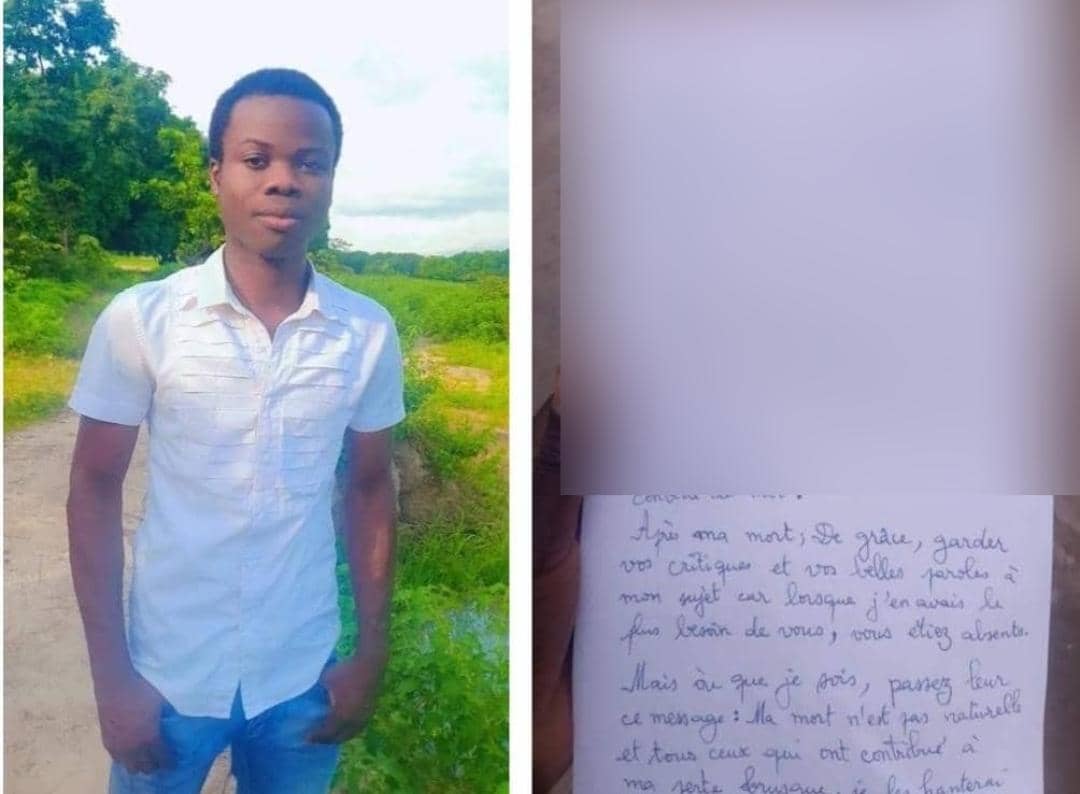 Après ma mort, De grâce, garder
vos critiques et vos belles paroles à
mon sujet car lorsque j'en avais le
plus besoin de vous, vous étiez absents.
Mais où que je sois, passez leur
ce message : Ma mort n'est pas naturelle
et tous ceux qui ont contribué à
ma perte brusque, je les hanterai